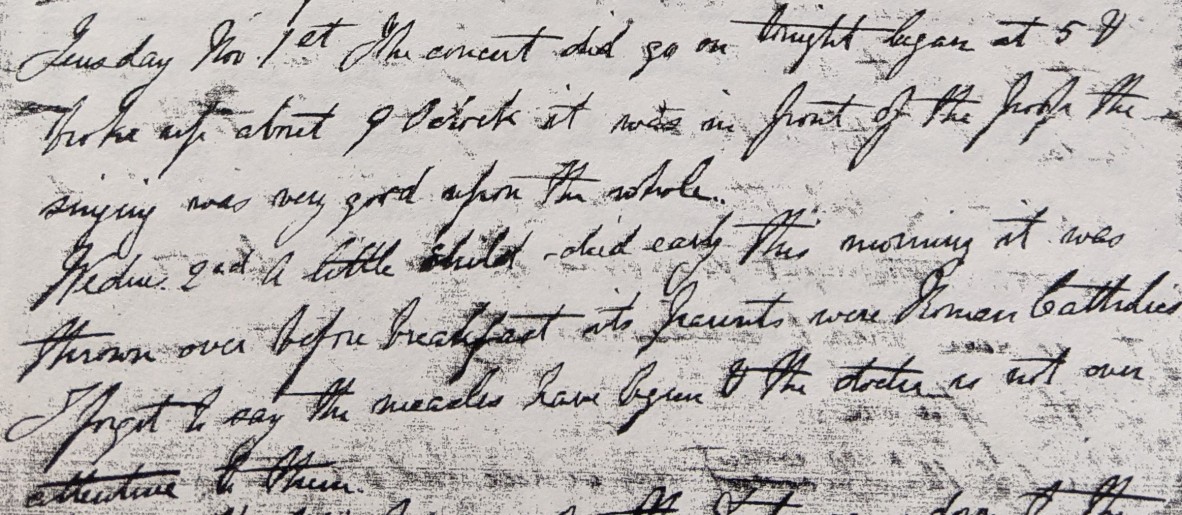 Tuesday Nov 1st The concert did go on tonight began at 5 &
broke up about 9 Oclock it was in front of the Poop the
singing was very good upon the whole.
Wedns. 2nd A little child died early this morning it was
thrown over before breakfast its parents were Roman Catholics
I forgot to say the measles have begun & the doctor is not over
attentive to them.